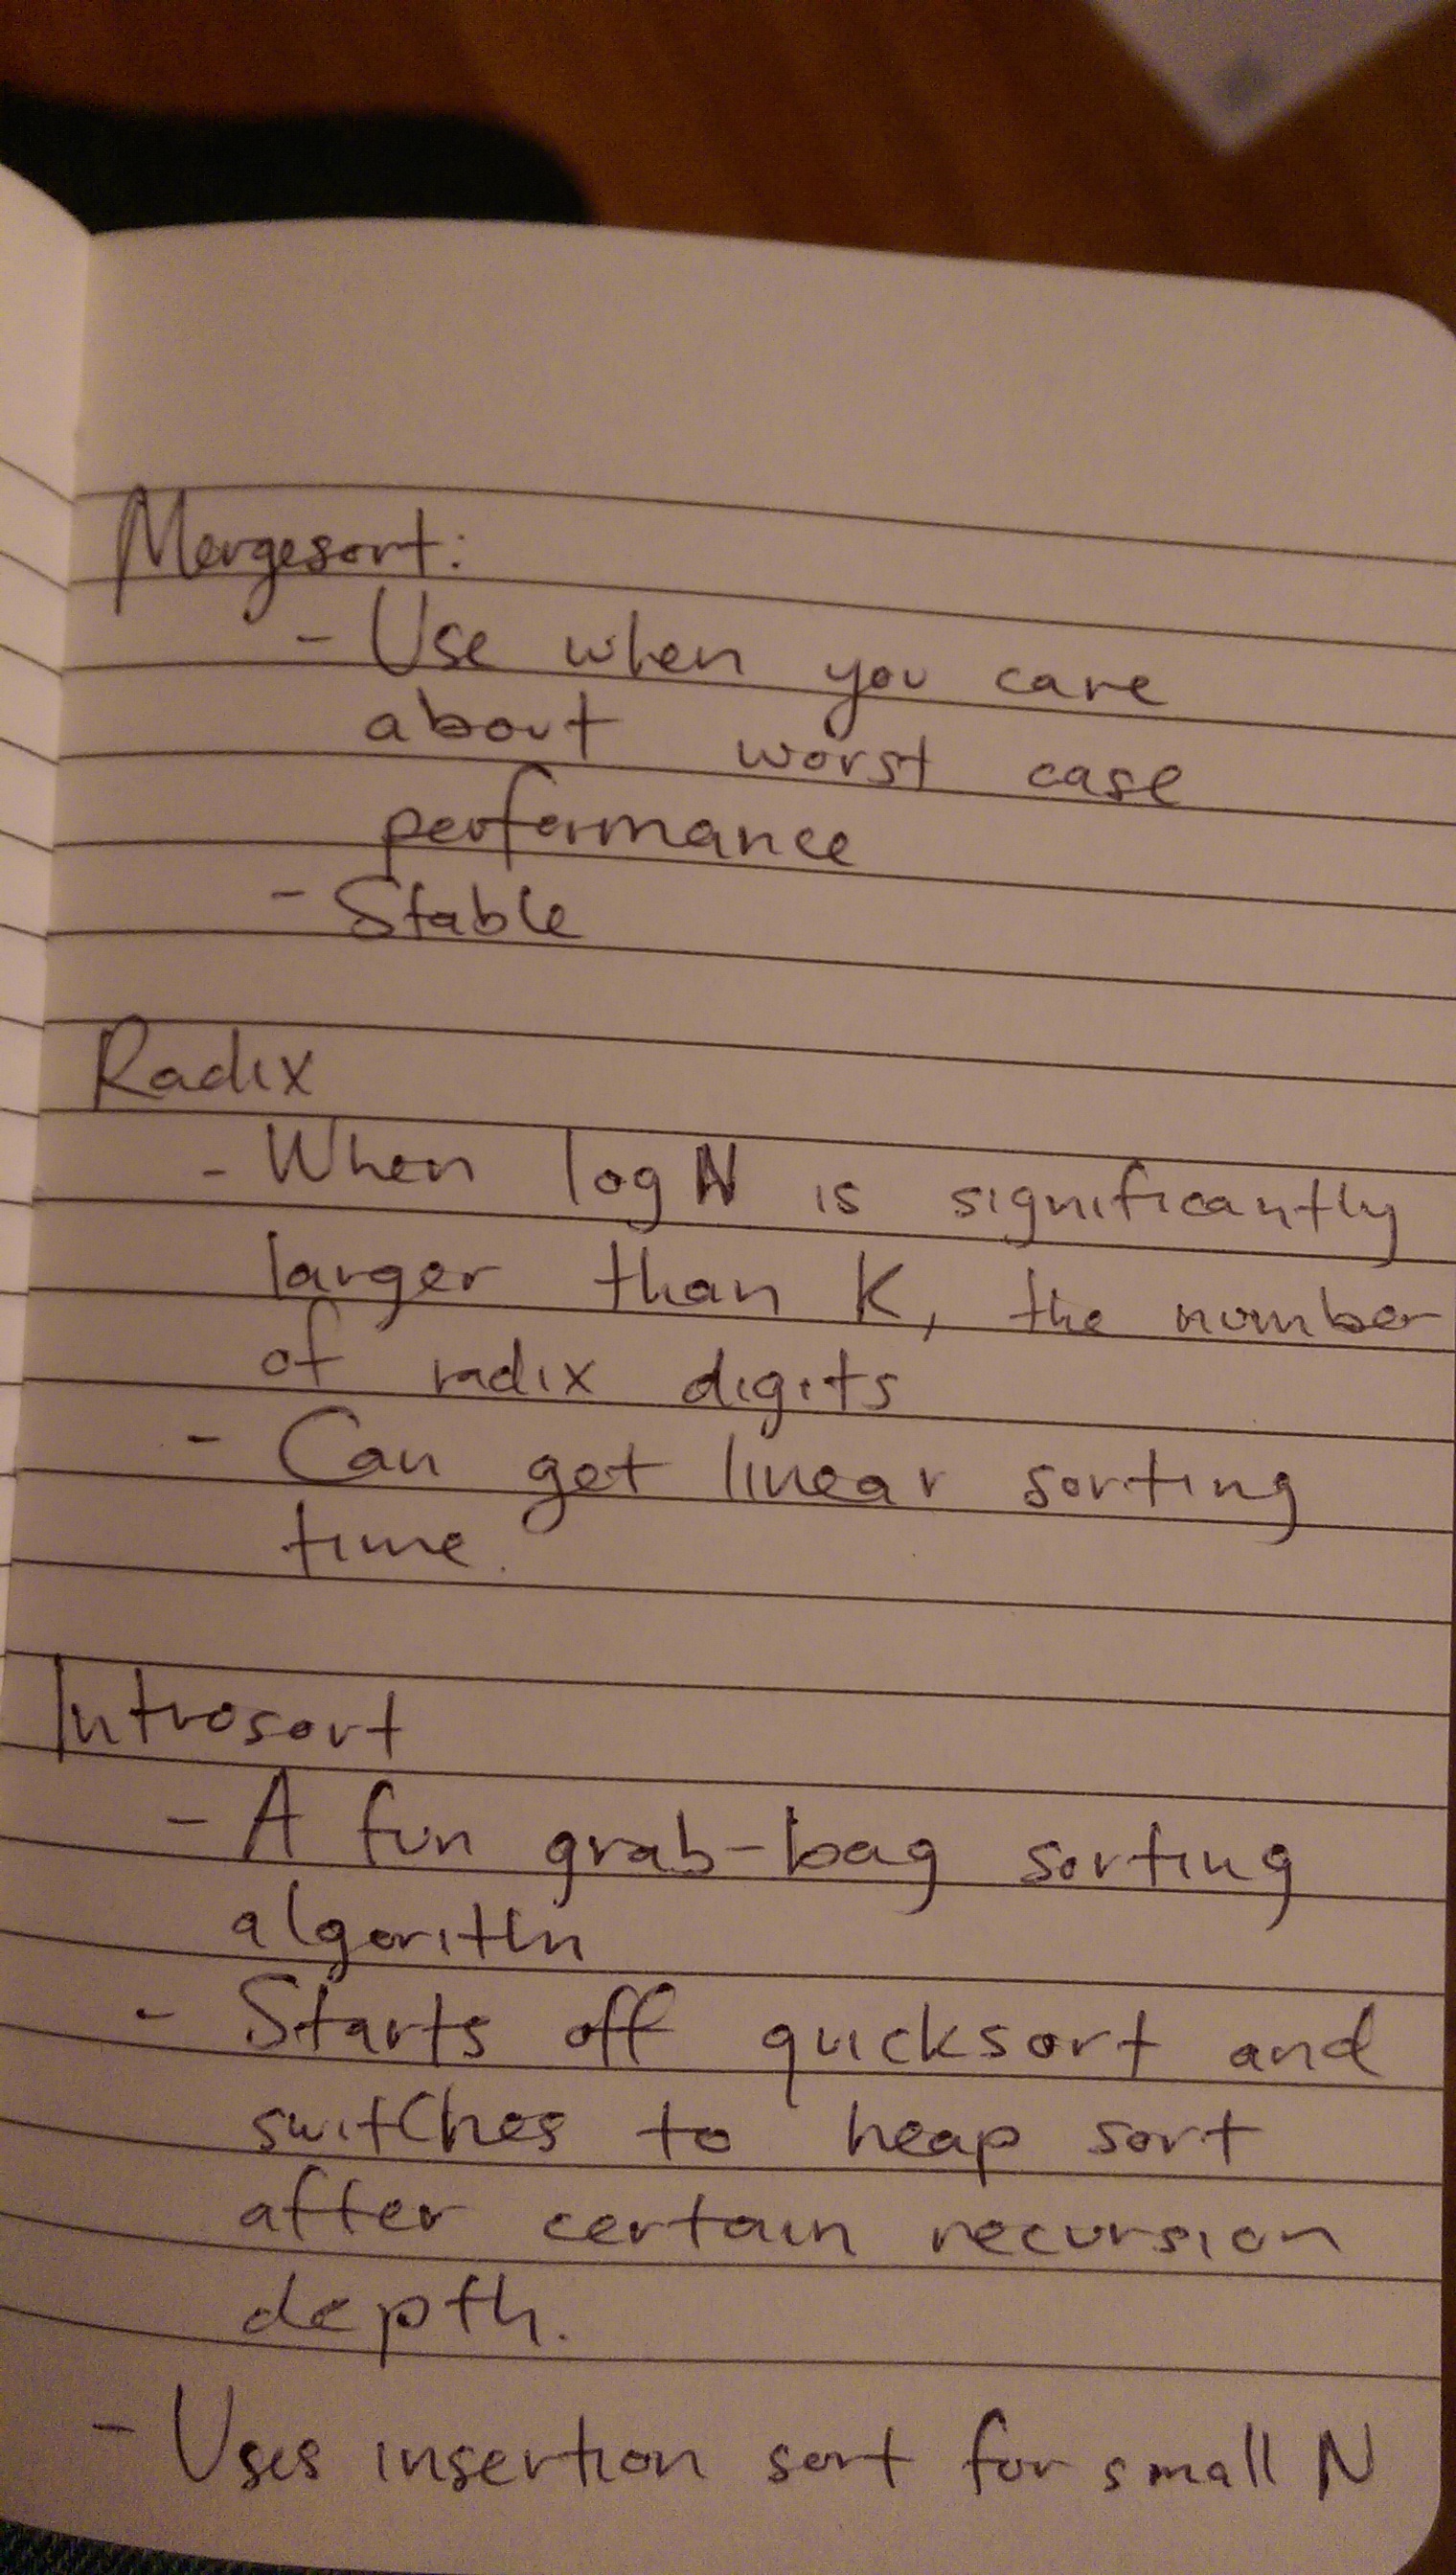 Mergesort:
- Use when you care
about worst case
performance
- Stable
Radix
- When log N is significantly
larger than K, the number
of radix digits
- Can get linear sorting
time.
Introsort
- A fun grab-bag sorting
algorithm
- Starts off quicksort and
switches to heap sort
after certain recursion
depth.
- Uses insertion sort for small N